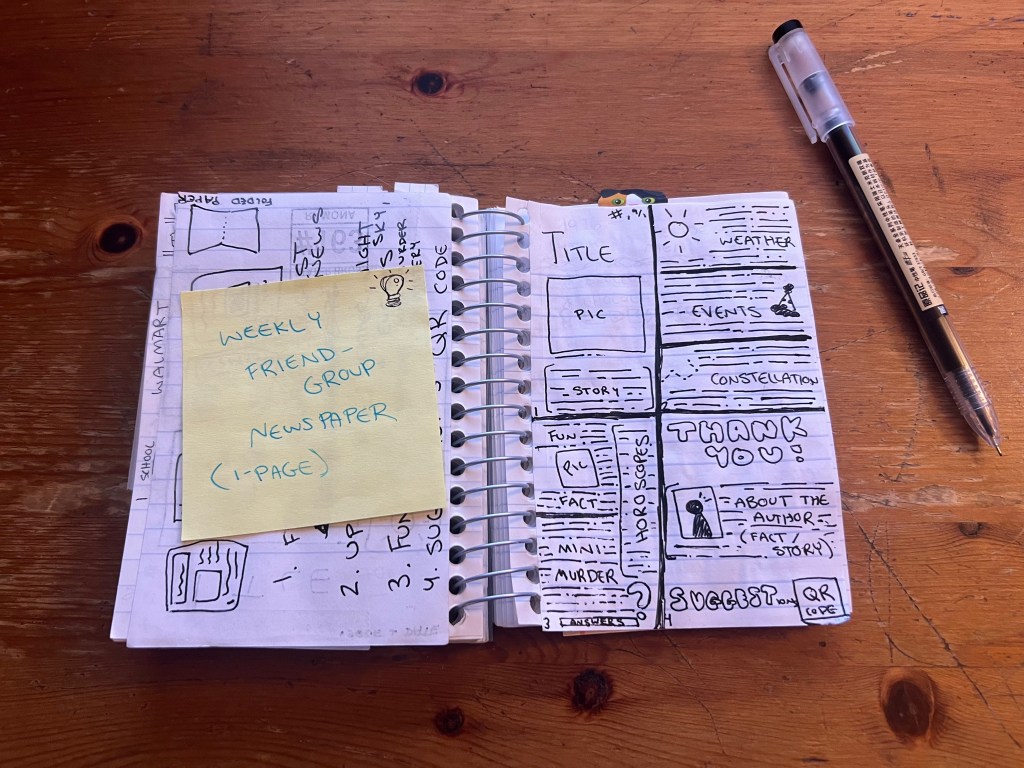 WEEKLY
FRIEND-
GROUP
NEWSPAPER
(1-PAGE)
FOLDED PAPER
WALMART
1 SCHOOL
QR CODE
1.
2. UP
3. FUN
4. SUG
#,%
TITLE
PIC
STORY
1
WEATHER
EVENTS
CONSTELLATION
FUN
PIC
FACT
HOROSCOPES
MINI
MURDER
3 ANSWERS
THANK
YOU!
ABOUT THE
AUTHOR
(FACT/
STORY)
SUGGESTIONS
QR
CODE
4